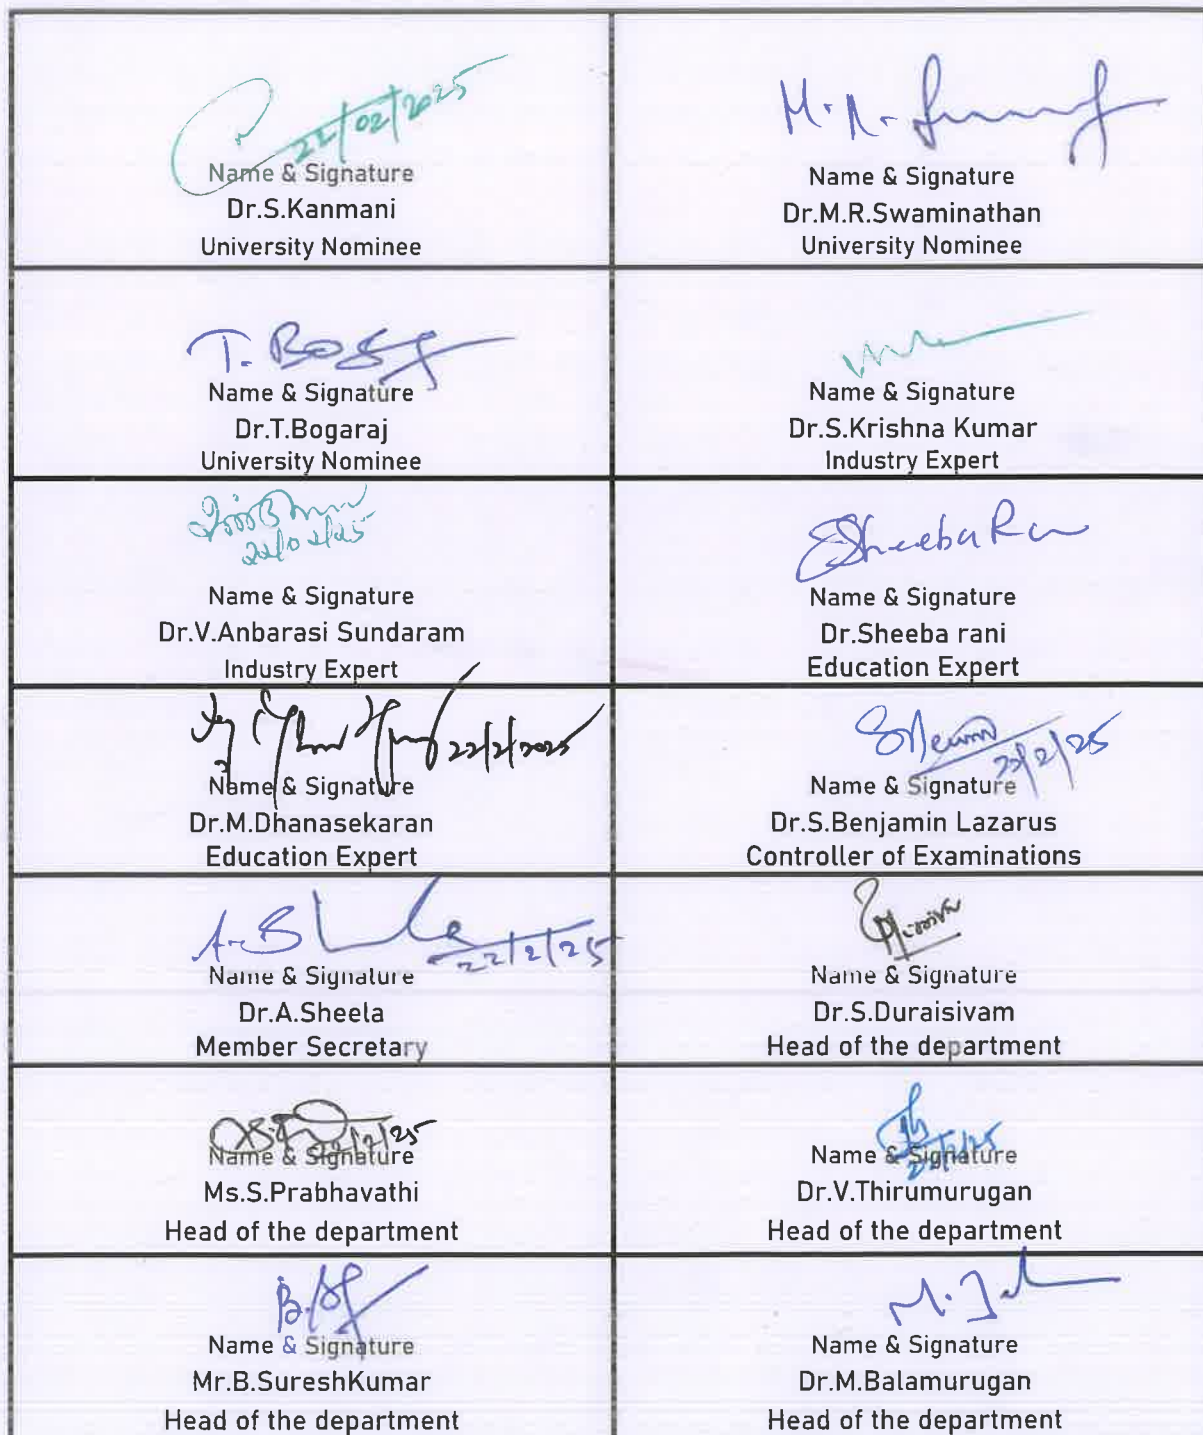 22/02/2025
Name & Signature
Dr.S.Kanmani
University Nominee
M.R.
Name & Signature
Dr.M.R.Swaminathan
University Nominee
T. Bosg
Name & Signature
Dr.T.Bogaraj
University Nominee
Name & Signature
Dr.S.Krishna Kumar
Industry Expert
22/02/25
Name & Signature
Dr.V.Anbarasi Sundaram
Industry Expert
Sheeba Ra
Name & Signature
Dr.Sheeba rani
Education Expert
22/2/2025
Name & Signature
Dr.M.Dhanasekaran
Education Expert
22/2/25
Name & Signature
Dr.S.Benjamin Lazarus
Controller of Examinations
A.
22/2/25
Name & Signature
Dr.A.Sheela
Member Secretary
Name & Signature
Dr.S.Duraisivam
Head of the department
22/2/25
Name & Signature
Ms.S.Prabhavathi
Head of the department
22/2/25
Name & Signature
Dr.V.Thirumurugan
Head of the department
B.
Name & Signature
Mr.B.SureshKumar
Head of the department
M.
Name & Signature
Dr.M.Balamurugan
Head of the department